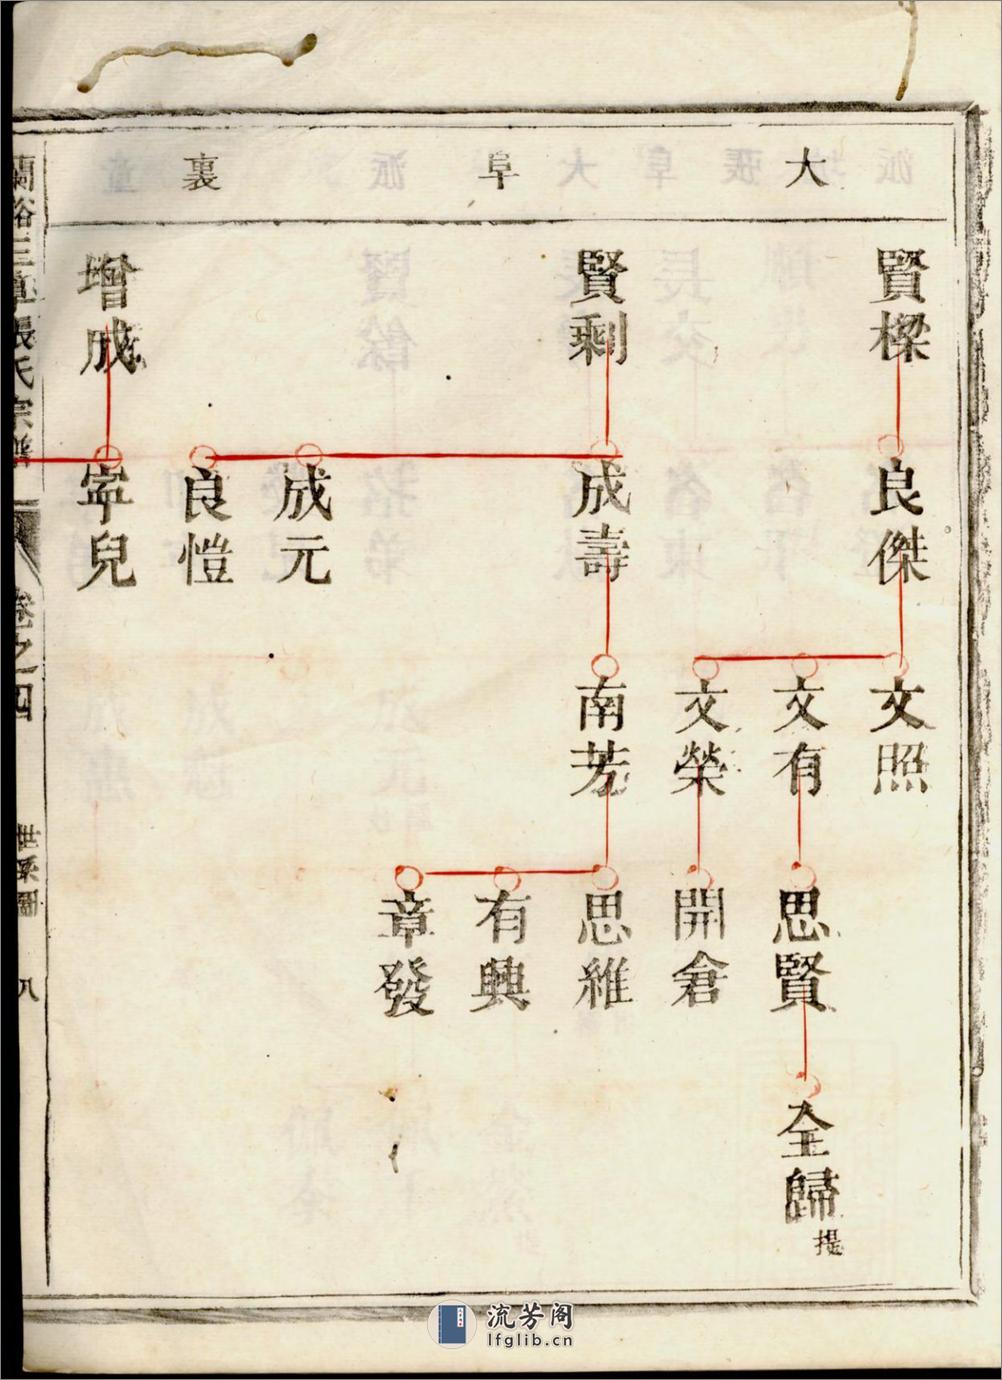 大阜裏
賢樑
賢剩
增成
良傑
成壽
成元
良愷
寧兒
文照
文有
文榮
南芳
思賢
開倉
思維
有興
章發
全歸提
張氏宗譜
卷之四
世系圖
八
流芳阁
lfglib.cn